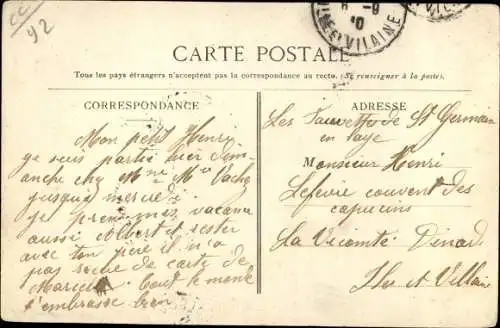 CC
42
6 - 9
10
ILLE ET VILAINE
CARTE POSTALE
Tous les pays étrangers n'acceptent pas la correspondance au recto. (Se renseigner à la poste).
CORRESPONDANCE
Mon petit Henri
je suis partie hier dim-
anche chez Mme
jusqua mercredi
je mes vacances
aussi Albert et rester
avec ton père il n'a
pas de carte de
Tout le monde
t'embrasse bien
ADRESSE
Les de St Germain
en Laye
Monsieur Henri
Lefevre couvent des
capucins
La Vicomté Dinard
et Villaine